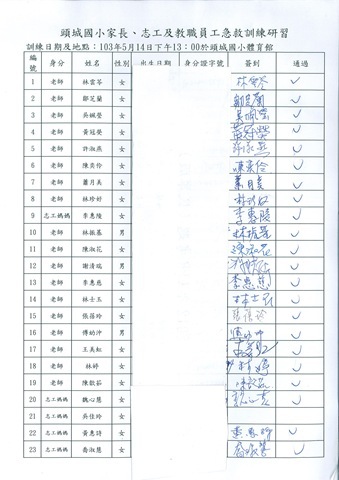 頭城國小家長、志工及教職員工急救訓練研習
訓練日期及地點：103年5月14日下午13：00於頭城國小體育館
編號 身分 姓名 性別 出生日期 身分證字號 簽到 通過
1 老師 林雲苓 女 ✓
2 老師 鄒芝蘭 女 鄒芝蘭 ✓
3 老師 吳姵瑩 女 吳姵瑩 ✓
4 老師 黃冠榮 女 ✓
5 老師 許淑燕 女 ✓
6 老師 陳奕伶 女 陳奕伶 ✓
7 老師 蕭月美 女 ✓
8 老師 林珍妤 女 林珍妤 ✓
9 志工媽媽 李惠陵 女 李惠陵 ✓
10 老師 林振基 男 林振基 ✓
11 老師 陳淑花 女 陳淑花 ✓
12 老師 謝清瑞 男 ✓
13 老師 李惠慈 女 李惠慈 ✓
14 老師 林士玉 女 林士玉 ✓
15 老師 張蓓玲 女 ✓
16 老師 傅幼沖 男 ✓
17 老師 王美虹 女 ✓
18 老師 林婷 女 林婷 ✓
19 老師 陳歆茹 女 ✓
20 志工媽媽 魏心慧 女 ✓
21 志工媽媽 吳佳玲 女
22 志工媽媽 黃惠詩 女 ✓
23 志工媽媽 喬淑慧 女 ✓